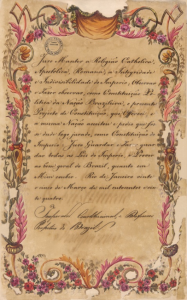 Juro Manter a Religião Catholica
Apostolica, Romana, a Integridade
e Indivisibilidade do Imperio, Observar
e Fazer Observar, como Constituição Po-
litica da Nação Brazileira, o presente
Projecto de Constituição, que Offereci, e
a mesma Nação acceitou, e pedio que fos-
se desde logo jurado, como Constituição do
Imperio: Juro Guardar e Fazer guardar
todas as Leis do Imperio, e Prover
ao bem geral do Brazil, quanto em
Mim couber. Rio de Janeiro vinte
e cinco de Março de mil oitocentos e vin-
te e quatro.
Imperador Constitucional, e Defensor
Perpetuo do Brazil